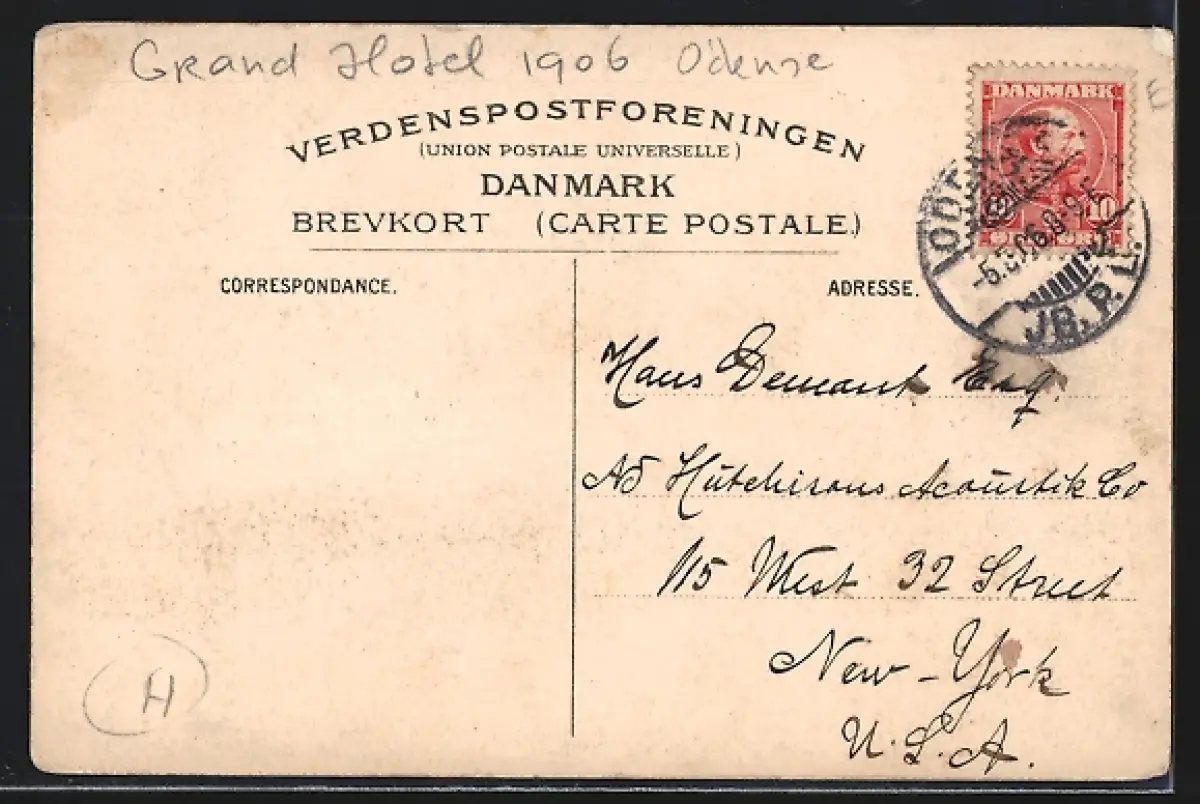 Grand Hotel 1906 Odense
E
VERDENSPOSTFORENINGEN
(UNION POSTALE UNIVERSELLE)
DANMARK
BREVKORT (CARTE POSTALE.)
CORRESPONDANCE.
ADRESSE.
DANMARK
10
ODENSE
JB. P. E.
Hans Demant Esq.
Hutchisons Acoustik Co
115 West 32 Street
New-York
U.S.A.
H